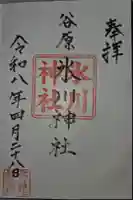 奉拝
谷原氷川神社
氷川神社
令和八年四月二十八日